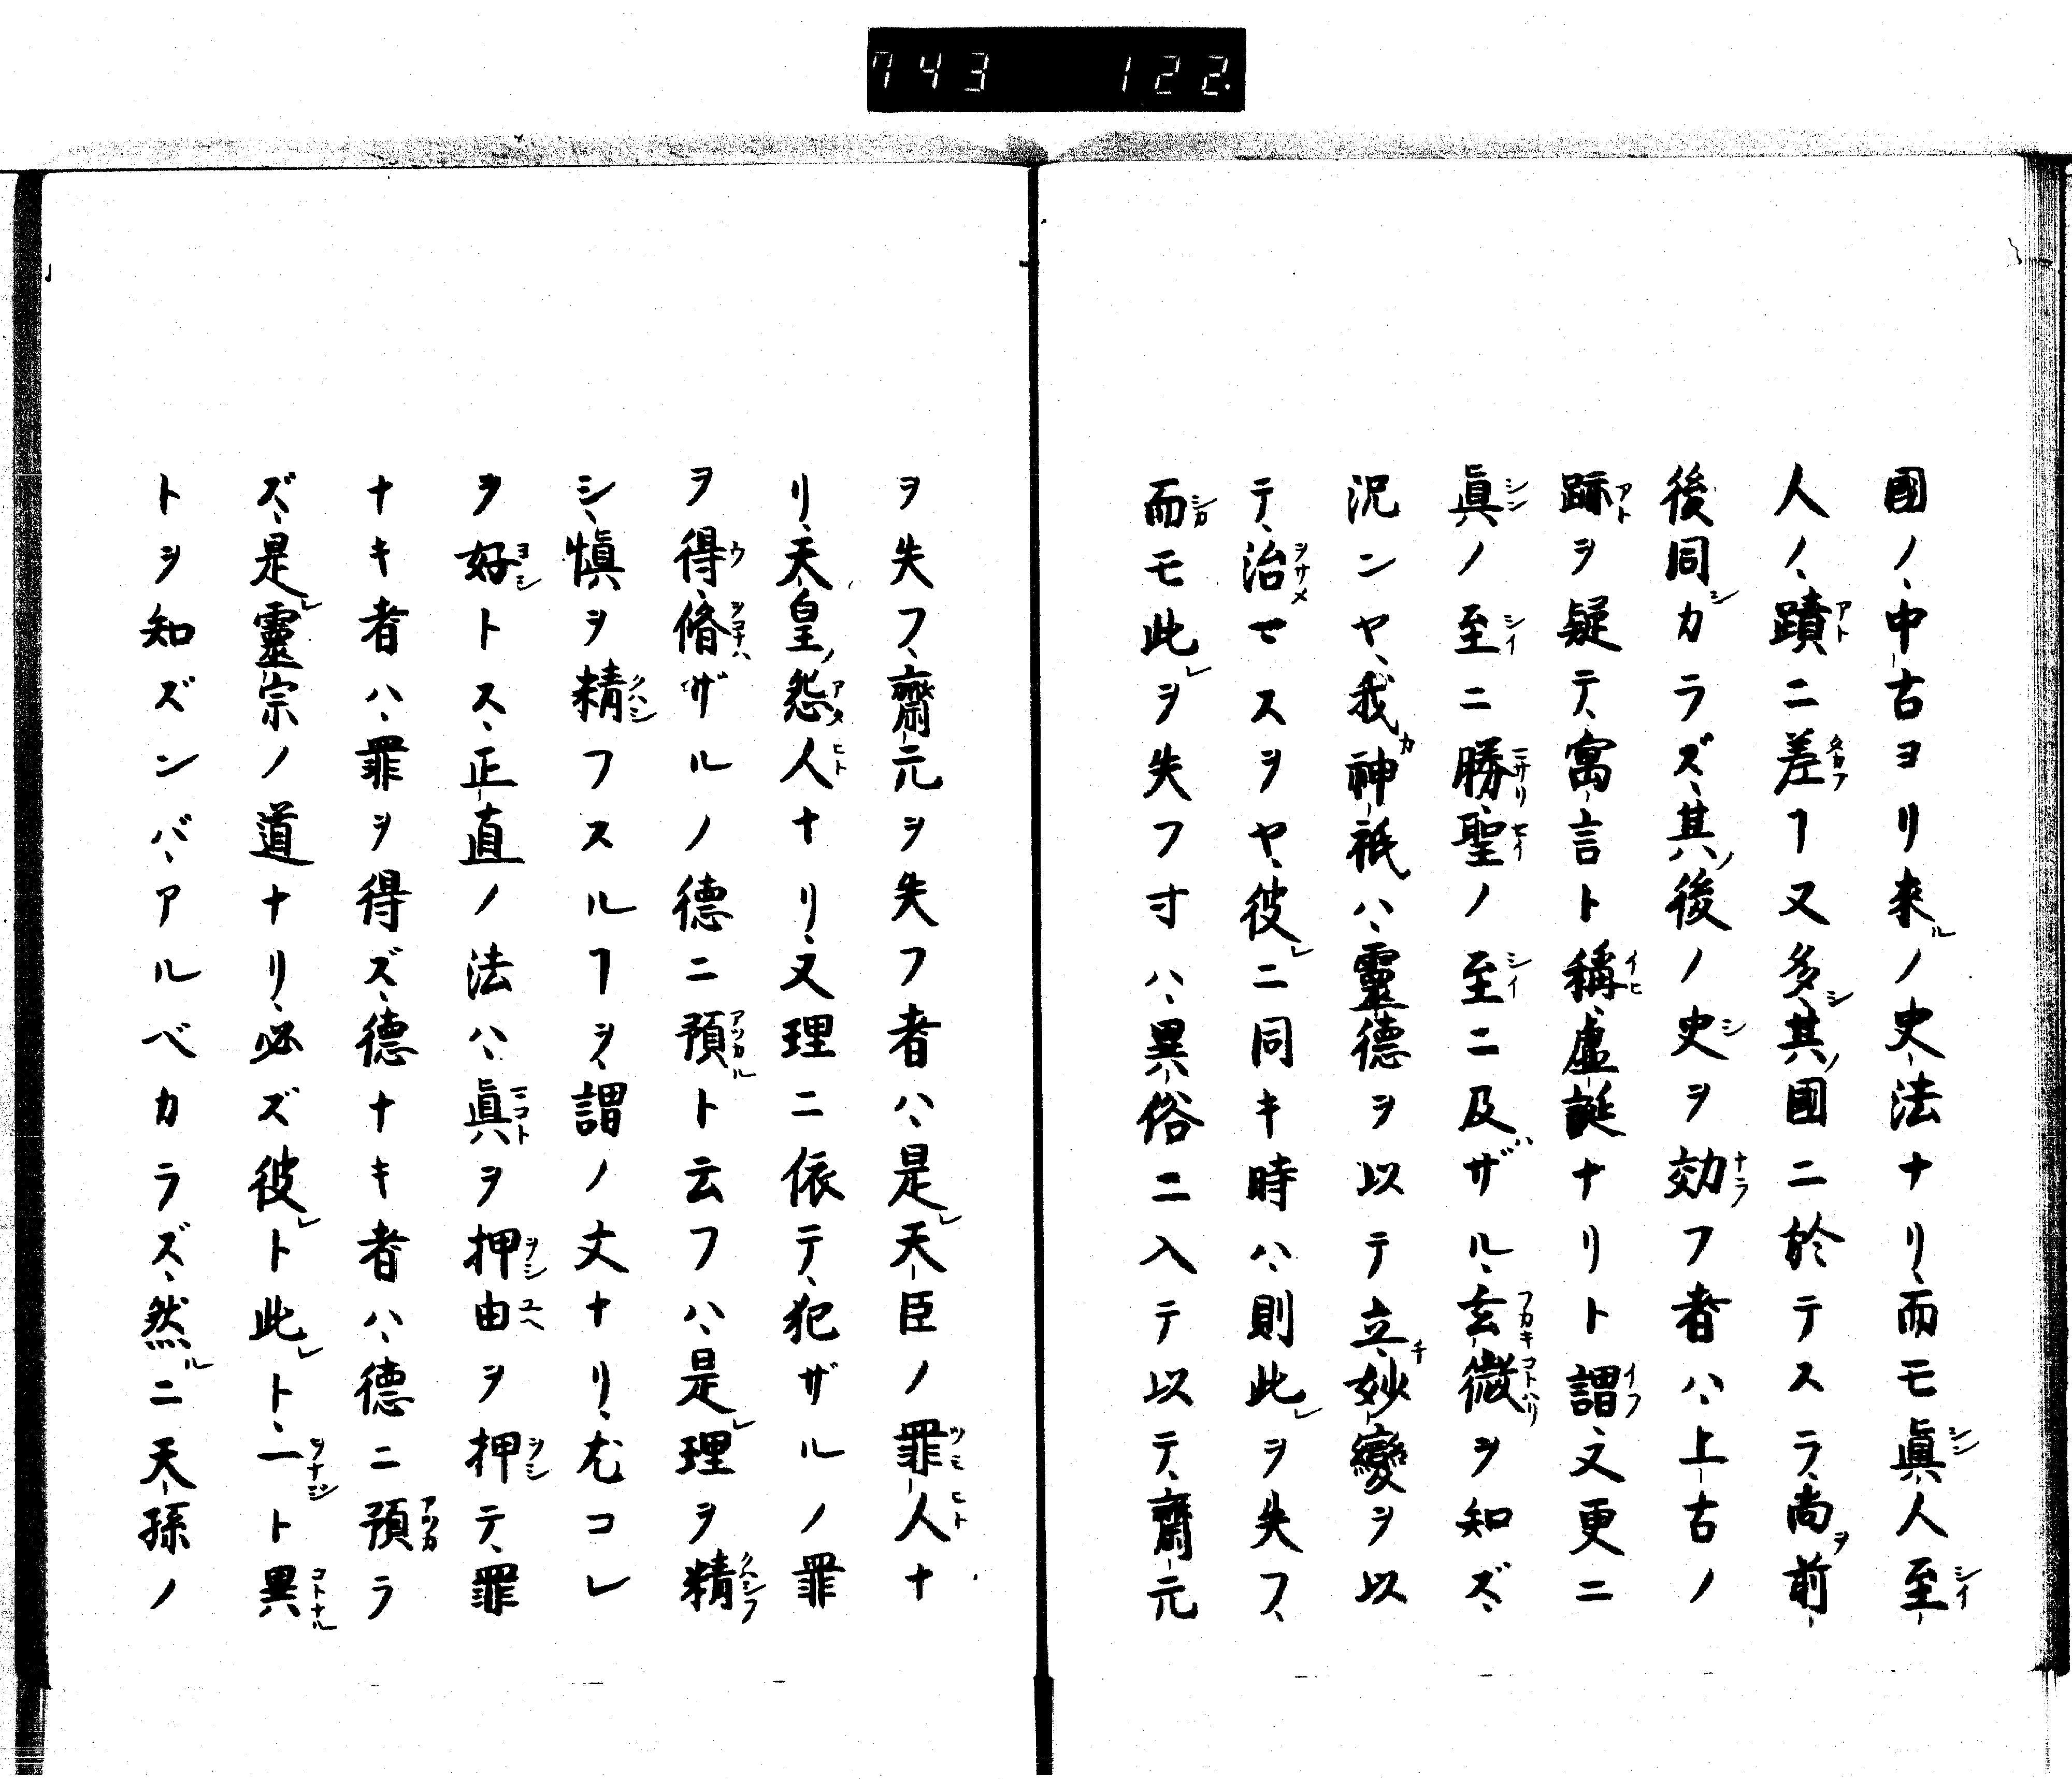 743 122.
國ノ、中古ヨリ來ルノ史法ナリ、而モ眞人至
人ノ、蹟ニ差フヿ又多シ、其ノ國ニ於テスラ、尚ヲ前
後同シカラズ、其ノ後ノ史ヲ効フ者ハ、上古ノ
跡ヲ疑テ、寓言ト稱、虛誕ナリト謂、又更ニ
眞ノ至ニ勝、聖ノ至ニ及ザル、玄微ヲ知ズ、
況ンヤ、我カ神祇ハ、靈德ヲ以テ立チ、妙變ヲ以
テ、治マスヲヤ、彼レニ同キ時ハ、則此レヲ失フ、
而モ此レヲ失フ寸ハ、異俗ニ入テ以テ、齋元
ヲ失フ、齋元ヲ失フ者ハ、是レ天臣ノ罪人ナ
リ、天皇ノ怨人ナリ、又理ニ依テ、犯ザルノ罪
ヲ得、脩ザルノ德ニ預ト云フハ、是レ理ヲ精
シ、愼ヲ精フスルヿヲ、謂ノ丈ナリ、尤コレ
ヲ好トス、正直ノ法ハ、眞ヲ押由ヲ押テ、罪
ナキ者ハ、罪ヲ得ズ、德ナキ者ハ、德ニ預ラ
ズ、是レ靈宗ノ道ナリ、必ズ彼レト此レト、一ト異
トヲ知ズンバ、アルベカラズ、然ルニ天孫ノ